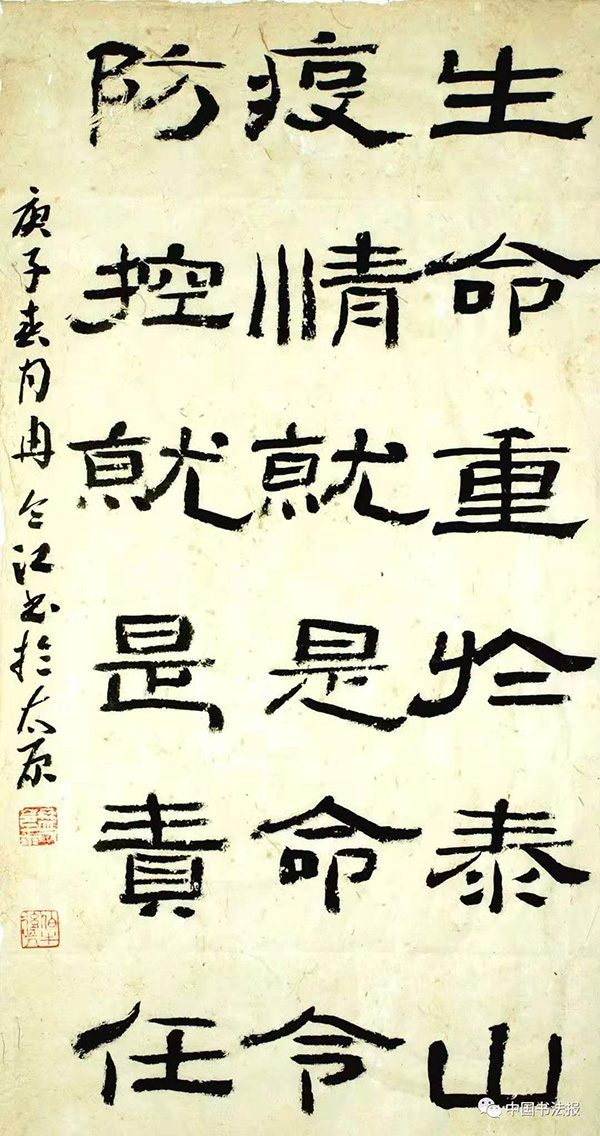 生命重於泰山
疫情就是命令
防控就是責任
庚子春月冉仝江书於太原
中国书法报